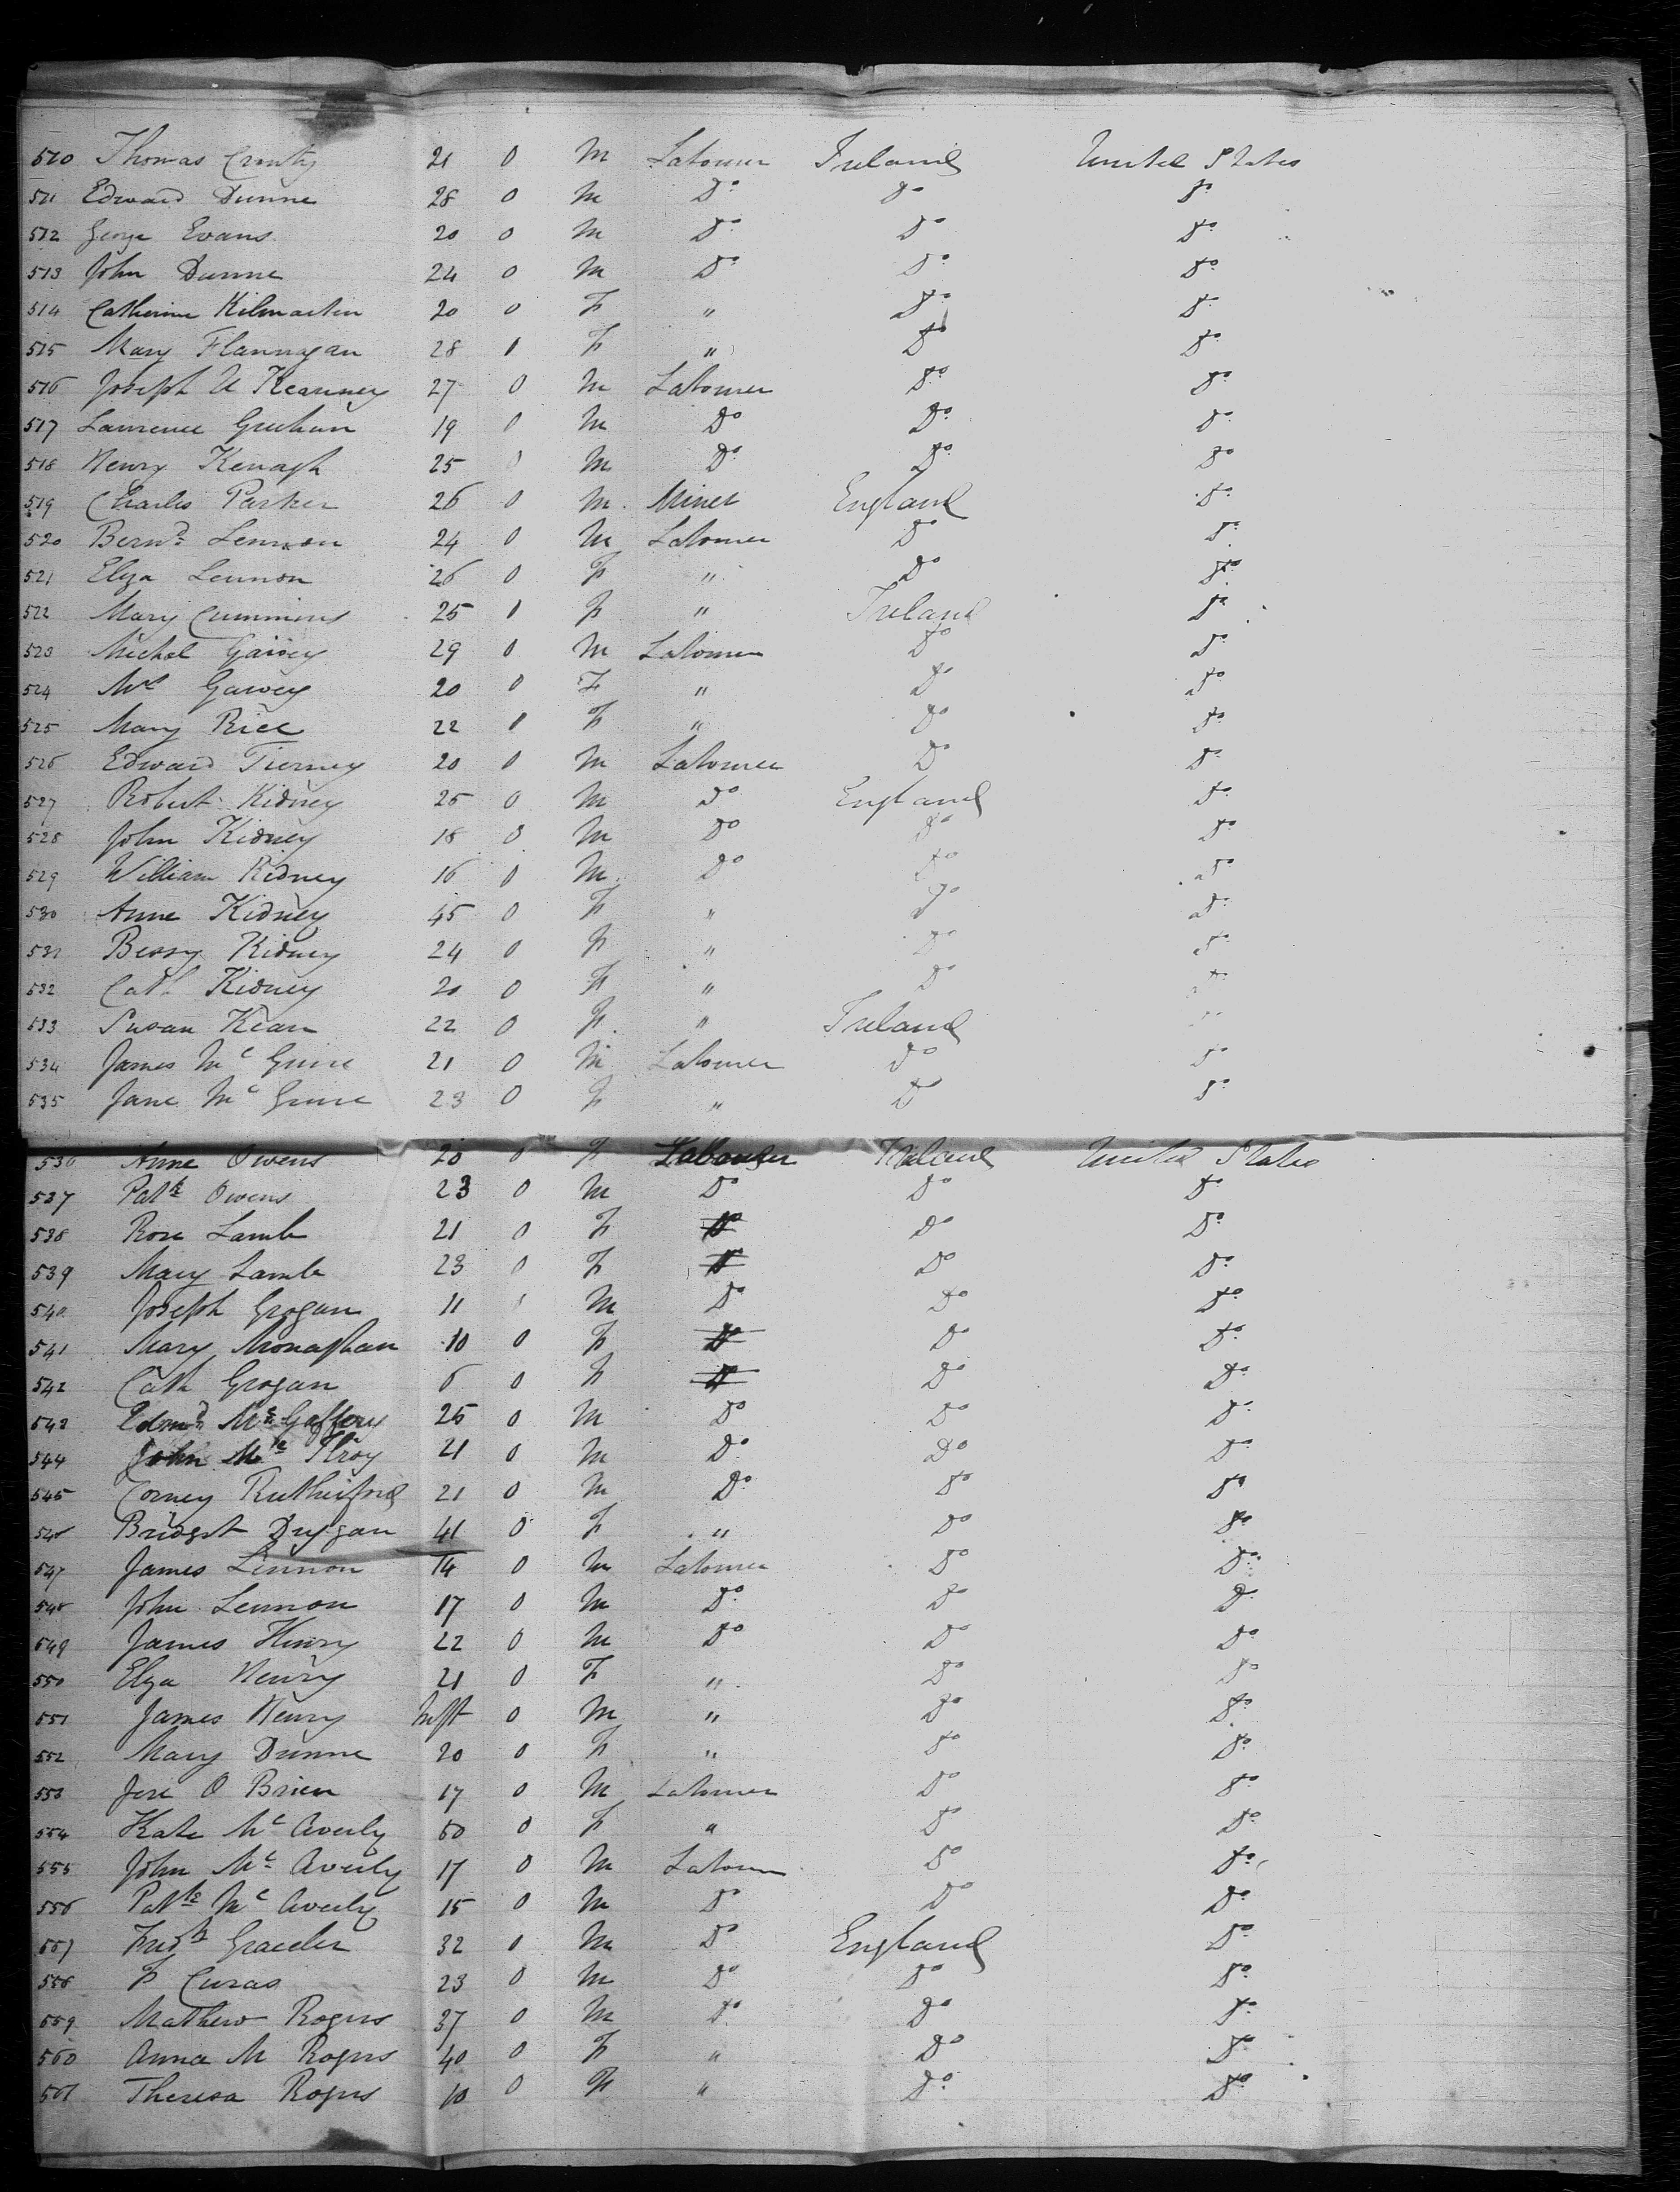 510 Thomas 21 0 M Labourer Ireland United States
511 Edward Dunne 28 0 M Do Do Do
512 George Evans 20 0 M Do Do Do
513 John Dunne 24 0 M Do Do Do
514 Catherine Kilmartin 20 0 F " Do Do
515 Mary Flannagan 28 F " Do Do
516 Joseph A Kearney 27 0 M Labourer Do Do
517 Laurence 19 0 M Do Do Do
518 Henry Kenagh 25 0 M Do Do Do
519 Charles Parker 26 0 M Miner England Do
520 Bernd Lennon 24 0 M Labourer Do Do
521 Eliza Lennon 26 0 F " Do Do
522 Mary Cummins 25 F " Ireland Do
523 Michal Garvey 29 0 M Labourer Do Do
524 Mrs Garvey 20 0 F " Do Do
525 Mary Rice 22 F " Do Do
526 Edward Tierney 20 M Labourer Do Do
527 Robert Kidney 25 0 M Do England Do
528 John Kidney 18 0 M Do Do Do
529 William Kidney 16 0 M Do Do Do
530 Anne Kidney 45 0 F " Do Do
531 Bessy Kidney 24 0 F " Do Do
532 Cath Kidney 20 0 F " Do Do
533 Susan Kean 22 0 F " Ireland
534 James Mc Guire 21 0 M Labourer Do Do
535 Jane Mc Guire 23 0 F " Do Do
536 Anne Owens 20 0 F Labourer Ireland United States
537 Patk Owens 23 0 M Do Do Do
538 Rose Lamb 21 0 F Do Do Do
539 Mary Lamb 23 0 F Do Do Do
540 Joseph Grogan 11 M Do Do Do
541 Mary Monaghan 10 0 F Do Do Do
542 Cath Grogan 6 0 F Do Do Do
543 Edmd Mc Gaffery 25 0 M Do Do Do
544 John Mc 21 0 M Do Do Do
545 Corney Rutherford 21 0 M Do Do Do
546 Bridget Duggan 41 0 F " Do Do
547 James Lennon 14 0 M Labourer Do Do
548 John Lennon 17 0 M Do Do Do
549 James Henry 22 0 M Do Do Do
550 Eliza Henry 21 0 F " Do Do
551 James Henry Inft 0 M " Do Do
552 Mary Dunne 20 0 F " Do Do
553 O Brien 17 0 M Labourer Do Do
554 Kate Mc Averly 50 0 F " Do Do
555 John Mc Averly 17 0 M Labourer Do Do
556 Patk Mc Averly 15 0 M Do Do Do
557 Fredk 32 M Do England Do
558 F Curas 23 0 M Do Do Do
559 Mathew Rogers 37 0 M Do Do Do
560 Anna M Rogers 40 0 F " Do Do
561 Theresa Rogers 10 0 F " Do Do